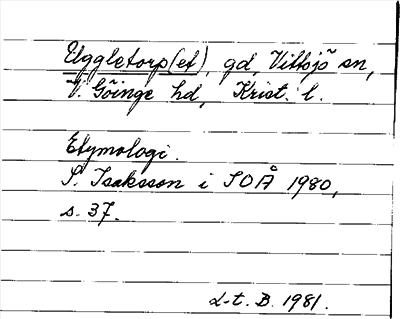 Uggletorp(et), gd, Vittsjö sn,
V. Göinge hd, Krist. l.
Etymologi.
S. Isaksson i SOÅ 1980,
s. 37.
L-t. B. 1981.